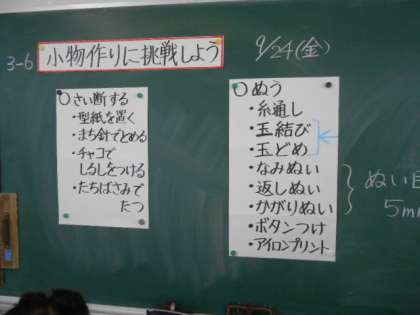 3-6
小物作りに挑戦しよう
9/24(金)
○さい断する
・型紙を置く
・まち針でとめる
・チャコで
しるしをつける
・たちばさみで
たつ
○ぬう
・糸通し
・玉結び
・玉どめ
・なみぬい
・返しぬい
・かがりぬい
・ボタンつけ
・アイロンプリント
ぬい目
5mm